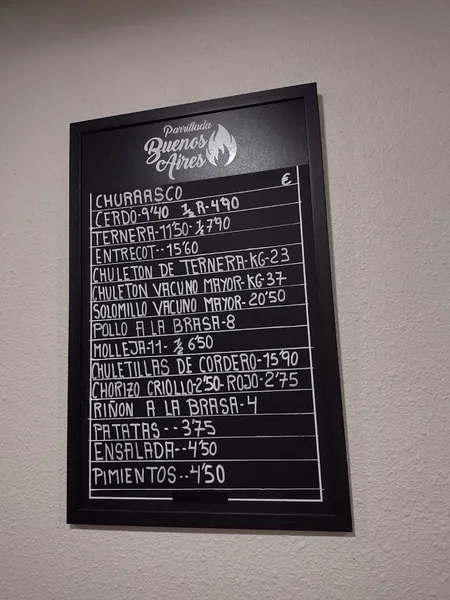 Parrillada
Buenos
Aires
€
CHURRASCO
CERDO-9'40 ½ R-4'90
TERNERA-11'50-½7'90
ENTRECOT--15'60
CHULETON DE TERNERA-KG-23
CHULETON VACUNO MAYOR-KG-37
SOLOMILLO VACUNO MAYOR-20'50
POLLO A LA BRASA-8
MOLLEJA-11-½ 6'50
CHULETILLAS DE CORDERO-15'90
CHORIZO CRIOLLO-2'50-ROJO-2'75
RIÑON A LA BRASA-4
PATATAS--3'75
ENSALADA--4'50
PIMIENTOS--4'50